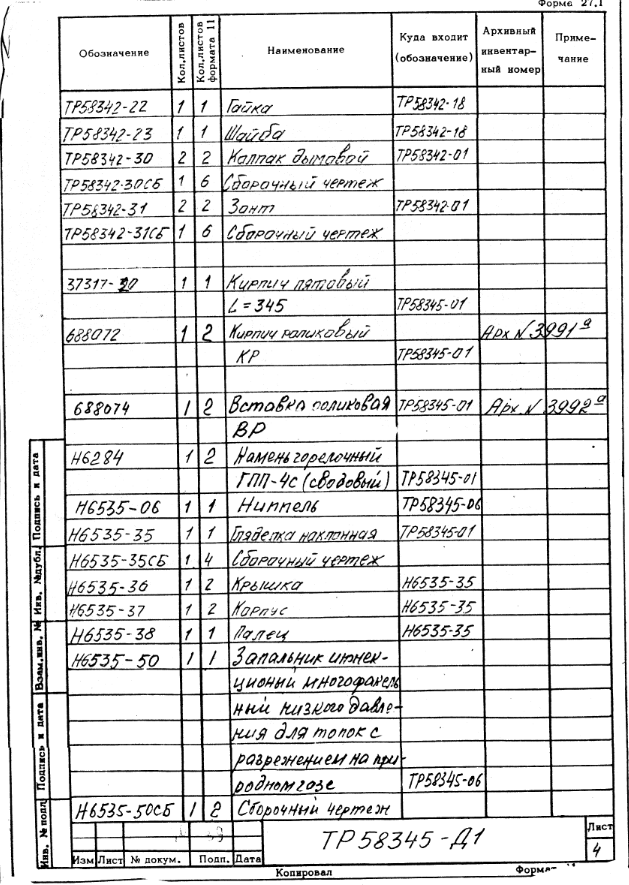 Форма 27.1
Обозначение | Кол.листов | Кол.листов формата 11 | Наименование | Куда входит (обозначение) | Архивный инвентарный номер | Примечание
ТР58342-22 1 1 Гайка ТР58342-18
ТР58342-23 1 1 Шайба ТР58342-18
ТР58342-30 2 2 Колпак дымовой ТР58342-01
ТР58342-30СБ 1 6 Сборочный чертеж
ТР58342-31 2 2 Зонт ТР58342-01
ТР58342-31СБ 1 6 Сборочный чертеж
37317- 1 1 Кирпич пятовый
L=345 ТР58345-01
688072 1 2 Кирпич роликовый Арх N 3991а
КР ТР58345-01
688074 1 2 Вставка роликовая ТР58345-01 Арх. N 3992а
ВР
Н6284 1 2 Камень горелочный
ГПП-4С (сводовый) ТР58345-01
Н6535-06 1 1 Ниппель ТР58345-06
Н6535-35 1 1 Гляделка наклонная ТР58345-01
Н6535-35СБ 1 4 Сборочный чертеж
Н6535-36 1 2 Крышка Н6535-35
Н6535-37 1 2 Корпус Н6535-35
Н6535-38 1 1 Палец Н6535-35
Н6535-50 1 1 Запальник инжек-
ционный многофакель
ный низкого давле-
ния для топок с
разрежением на при-
родном газе ТР58345-06
Н6535-50СБ 1 2 Сборочный чертеж
Инв. № подл. Подпись и дата Взам.инв. № Инв. №дубл. Подпись и дата
ТР58345-Д1
Лист
4
Изм Лист № докум. Подп. Дата
Копировал